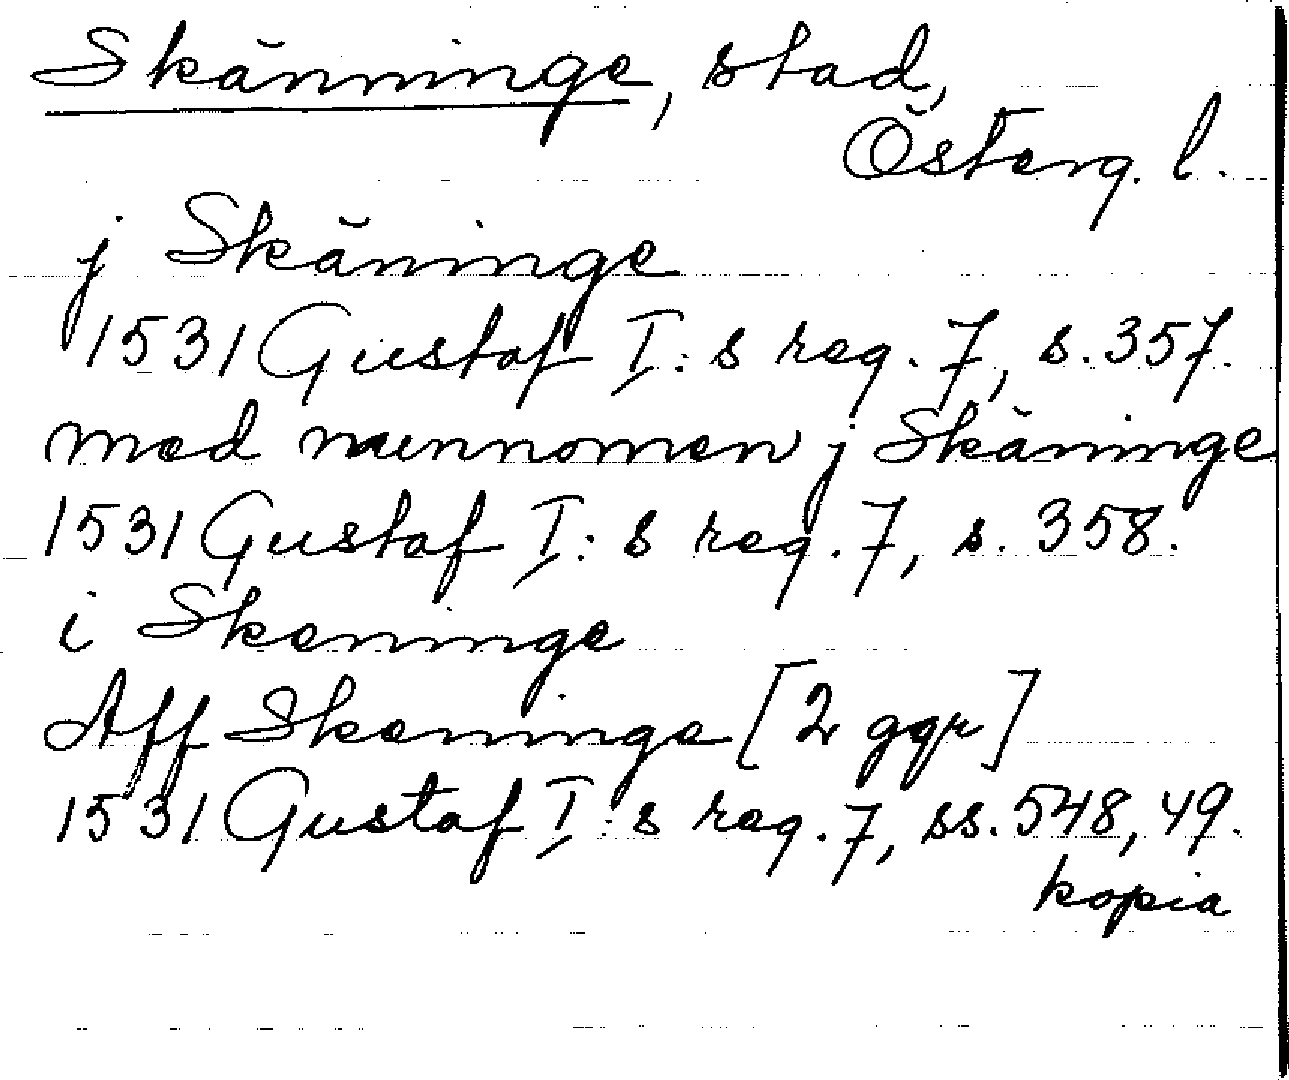 Skänninge, stad,
Österg. l.
j Skäninge
1531 Gustaf I:s reg. 7, s. 357.
med nunnomen j Skäninge
1531 Gustaf I:s reg. 7, s. 358.
i Skeninge
Aff Skeninge [2 ggr]
1531 Gustaf I:s reg. 7, ss. 548, 49.
kopia